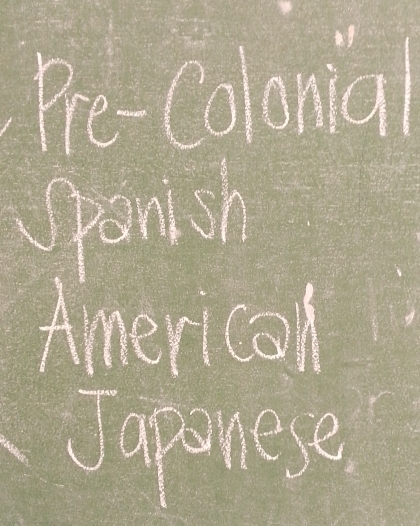 Pre-Colonial
Spanish
American
Japanese